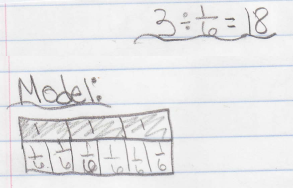 3 ÷ 1/6 = 18
Model:
1 1 1
1/6 1/6 1/6 1/6 1/6 1/6